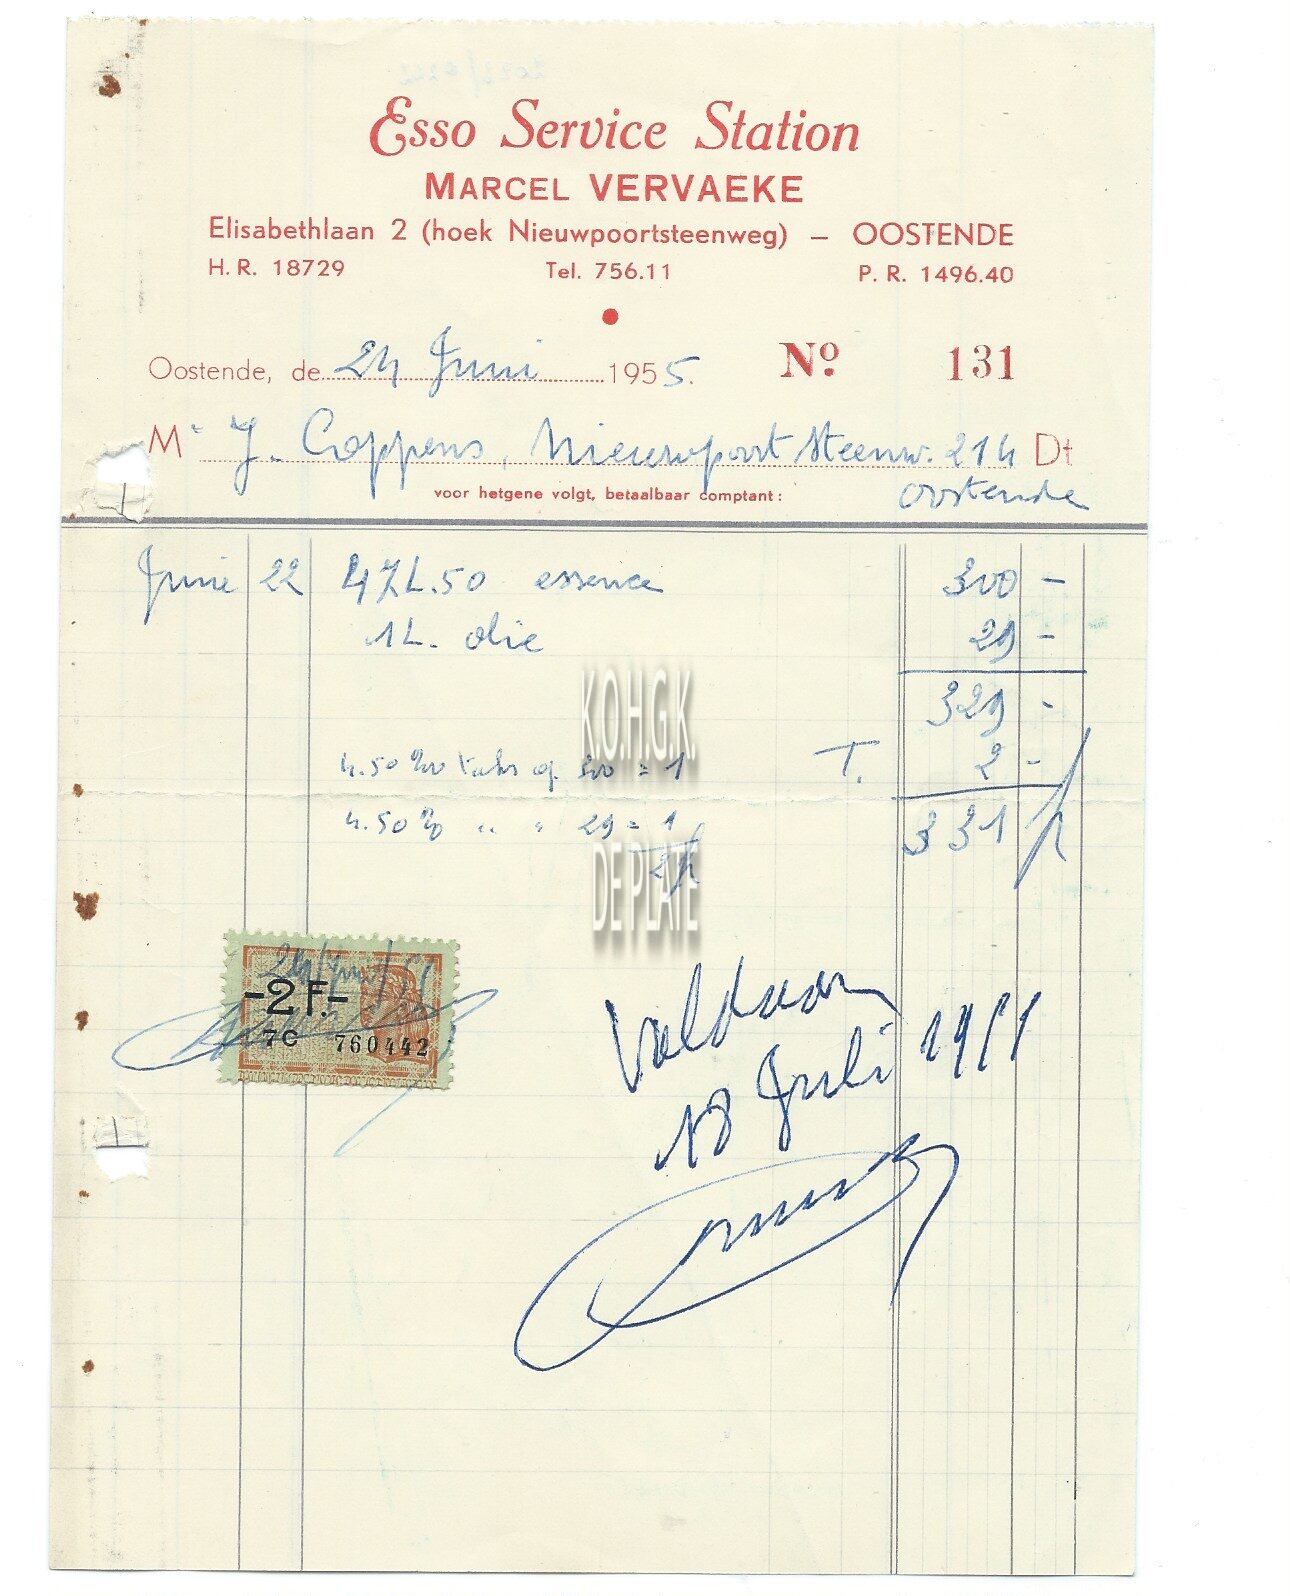 Esso Service Station
MARCEL VERVAEKE
Elisabethlaan 2 (hoek Nieuwpoortsteenweg) – OOSTENDE
H. R. 18729 Tel. 756.11 P. R. 1496.40
Oostende, de 24 Juni 1955. No 131
Mr J. Coppens, Nieuwpoortsteenw. 214 Dt
oostende
voor hetgene volgt, betaalbaar comptant:
Juni 22 47L.50 essence 300 -
1L. olie 29 -
329 -
4.50 % taks op 300 = 1 T. 2 -
4.50 % " " 29 = 1 331 fr
2 fr
K.O.H.G.K.
DE PLATE
24/Juni/55
-2 F.-
7C 760442
Voldaan
18 Juli 1955